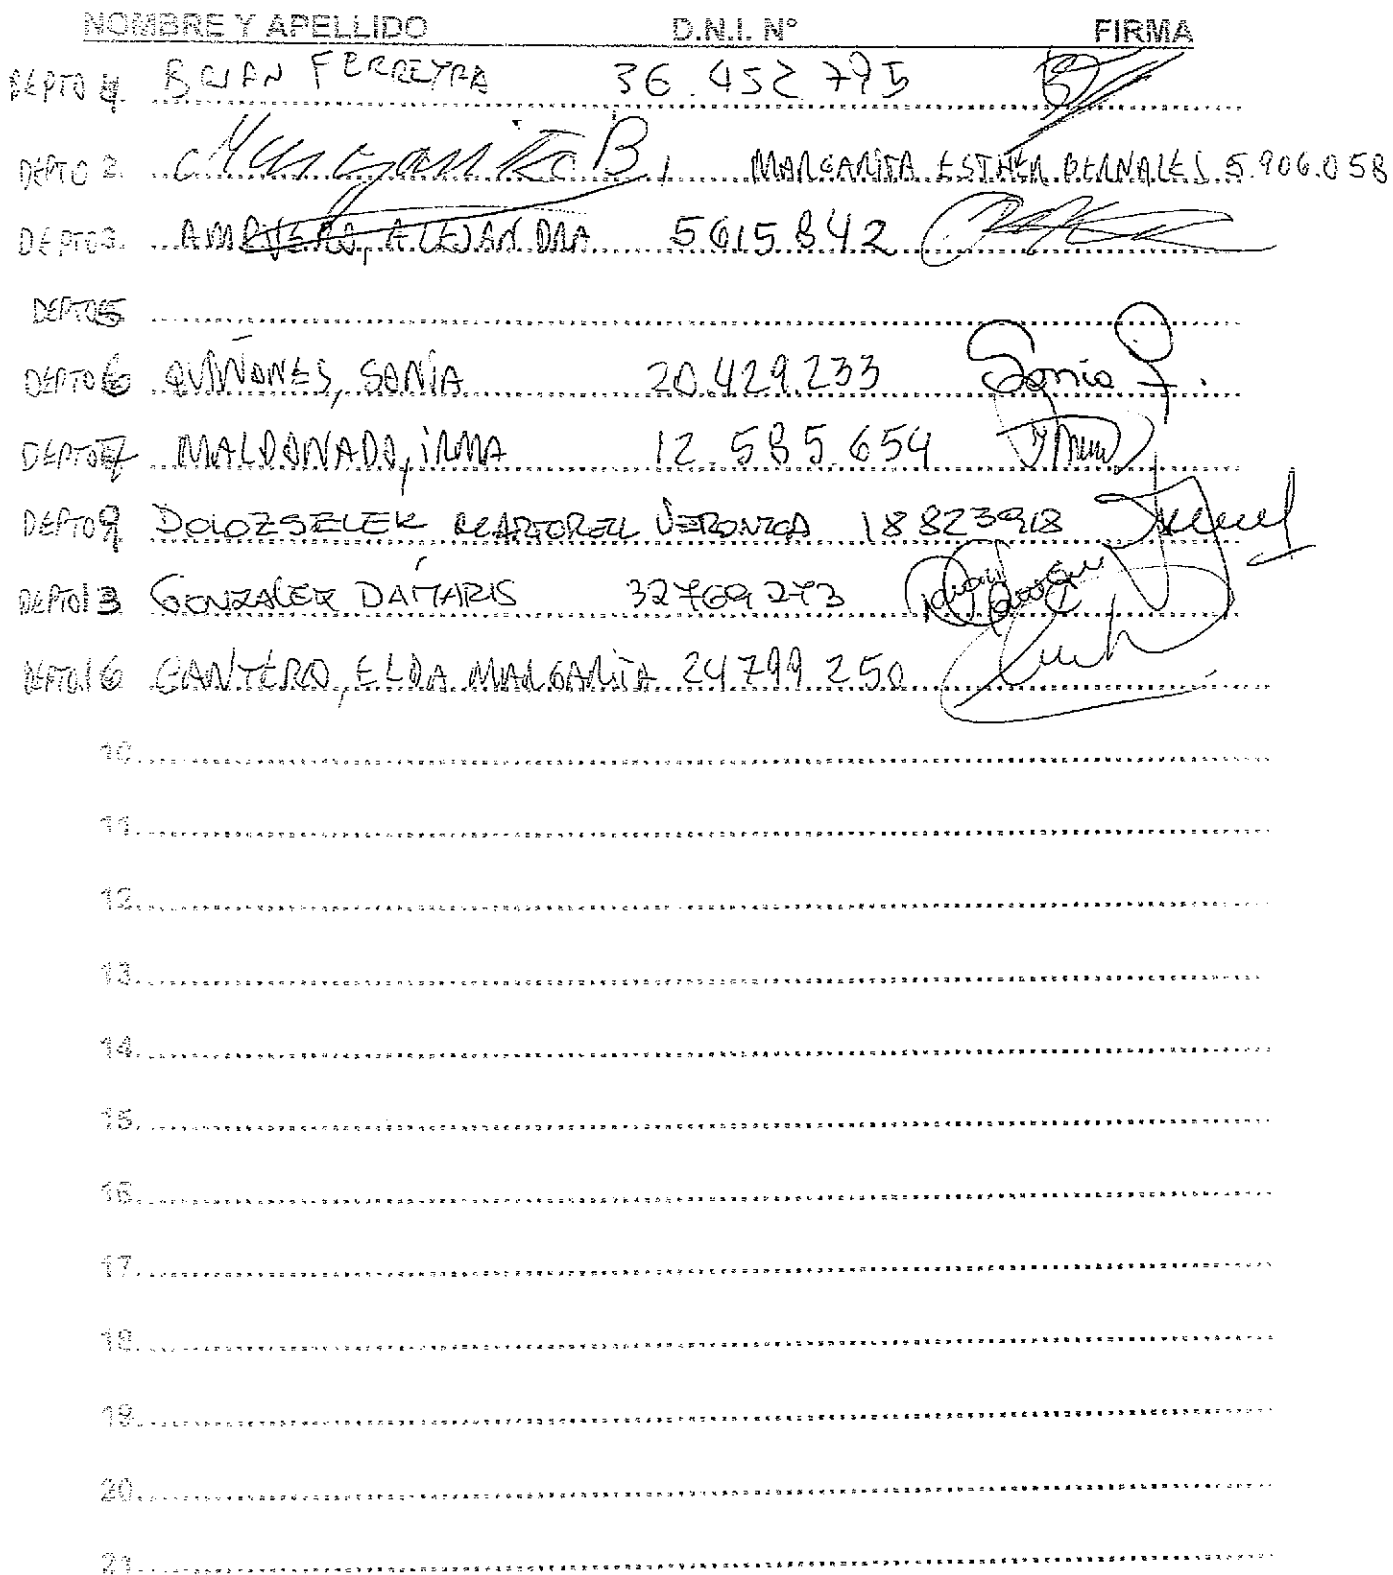 NOMBRE Y APELLIDO D.N.I. Nº FIRMA
DEPTO 4. BRIAN FERREYRA 36.452 795
DEPTO 2. Margarita B. MARGARITA ESTHER BERNALES 5.906.058
DEPTO 3. ALEJANDRA 5615842
DEPTO 5
DEPTO 6 QUIÑONES, SONIA 20.429.233 Sonia Q.
DEPTO 7 MALDONADO, IRMA 12.585.654
DEPTO 9 DOLOZSELEK MARTORELL VERONICA 18823918
DEPTO 13 GONZALEZ DAMARIS 32769273
DEPTO 16 CANTERO, ELDA MARGARITA 24799250
10.
11.
12.
13.
14.
15.
16.
17.
18.
19.
20.
21.